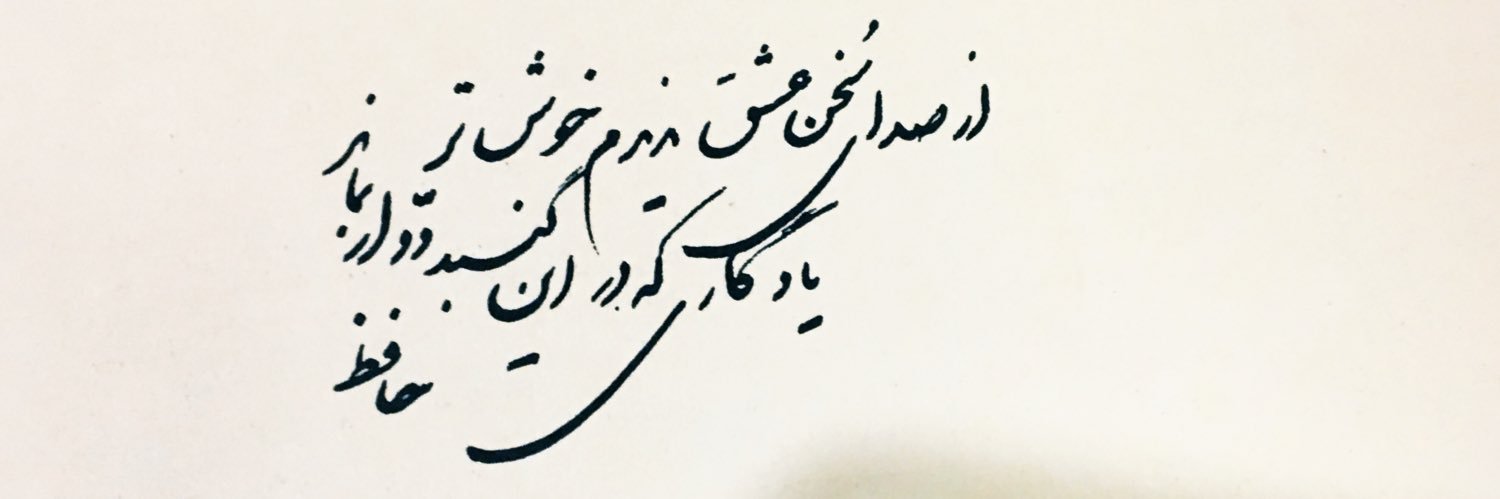 از صدای سُخن عشقَ ندیدم خوش تر
یادگاری که در این گنبد دوّار بماند
حافظ